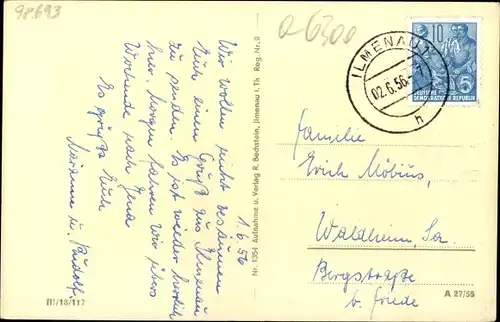 98693
o-6300
1.6.56
Wir wollen nicht versäumen
Euch einen Gruß aus Ilmenau
zu senden. Es ist wieder herrlich
hier. Morgen fahren wir übers
Wochende nach Jena
Es grüßt Euch
Marianne u. Rudolf.
III/18/117
Nr. 1354 Aufnahme u. Verlag R. Bechstein, Ilmenau i. Th. Reg. Nr. 9
ILMENAU
02.6.56
h
10
5
DEUTSCHE
DEMOKRATISCHE REPUBLIK
Familie
Erich Möbius,
Waldheim, Sa.
Bergstraße
b. Friede
A 27/55